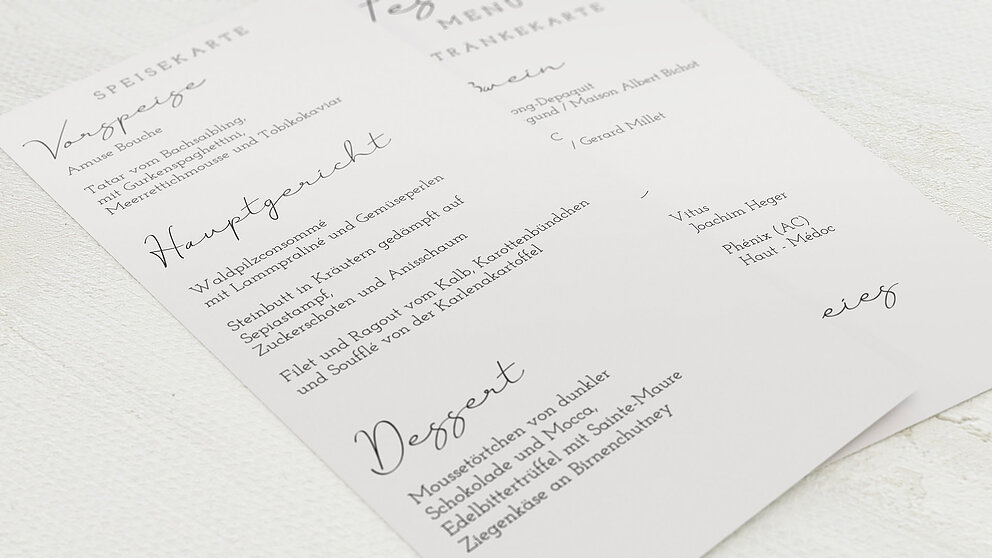 SPEISEKARTE
Vorspeise
Amuse Bouche
Tatar vom Bachsaibling,
mit Gurkenspaghettini,
Meerrettichmousse und Tobikokaviar
Hauptgericht
Waldpilzconsommé
mit Lammpraliné und Gemüseperlen
Steinbutt in Kräutern gedämpft auf
Sepiastampf,
Zuckerschoten und Anisschaum
Filet und Ragout vom Kalb, Karottenbündchen
und Soufflé von der Karlenakartoffel
Dessert
Moussetörtchen von dunkler
Schokolade und Mocca,
Edelbittertrüffel mit Sainte-Maure
Ziegenkäse an Birnenchutney
MENÜ
TRANKEKARTE
wein
ong-Depaquit
gund / Maison Albert Bichot
C
/ Gerard Millet
Vitus
Joachim Heger
Phénix (AC)
Haut - Médoc